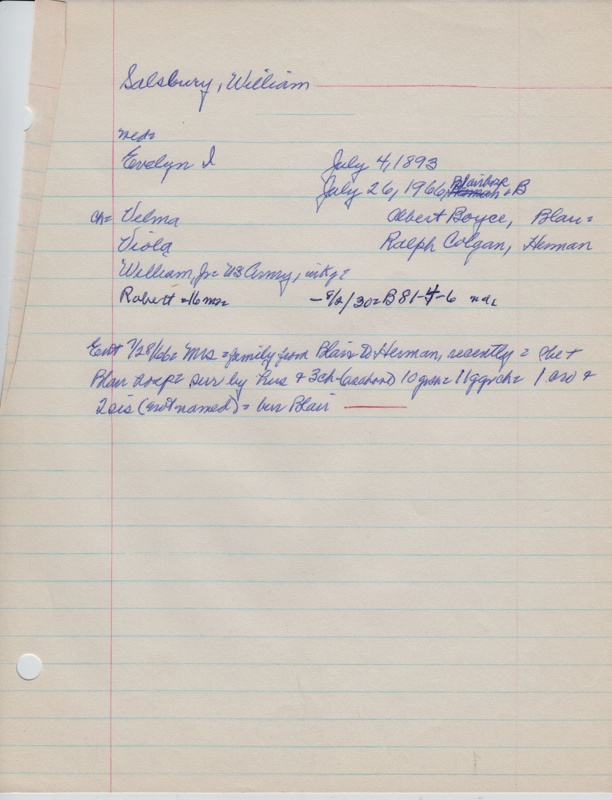 Salsbury, William
med=
Evelyn I July 4, 1893
July 26, 1966, Blair hosp = B
ch= Velma Albert Boyce, Blair=
Viola Ralph Colgan, Herman
William, Jr= US Army,
Robert = 16 mo= - 9/2/30 = B 81-4-6
Ent 7/28/66= Mrs = family from Blair to Herman, recently =
Blair hosp= sur by hus & 3 ch 10 grch= 11 ggrch= 1 bro &
2 sis (not named) = bur Blair